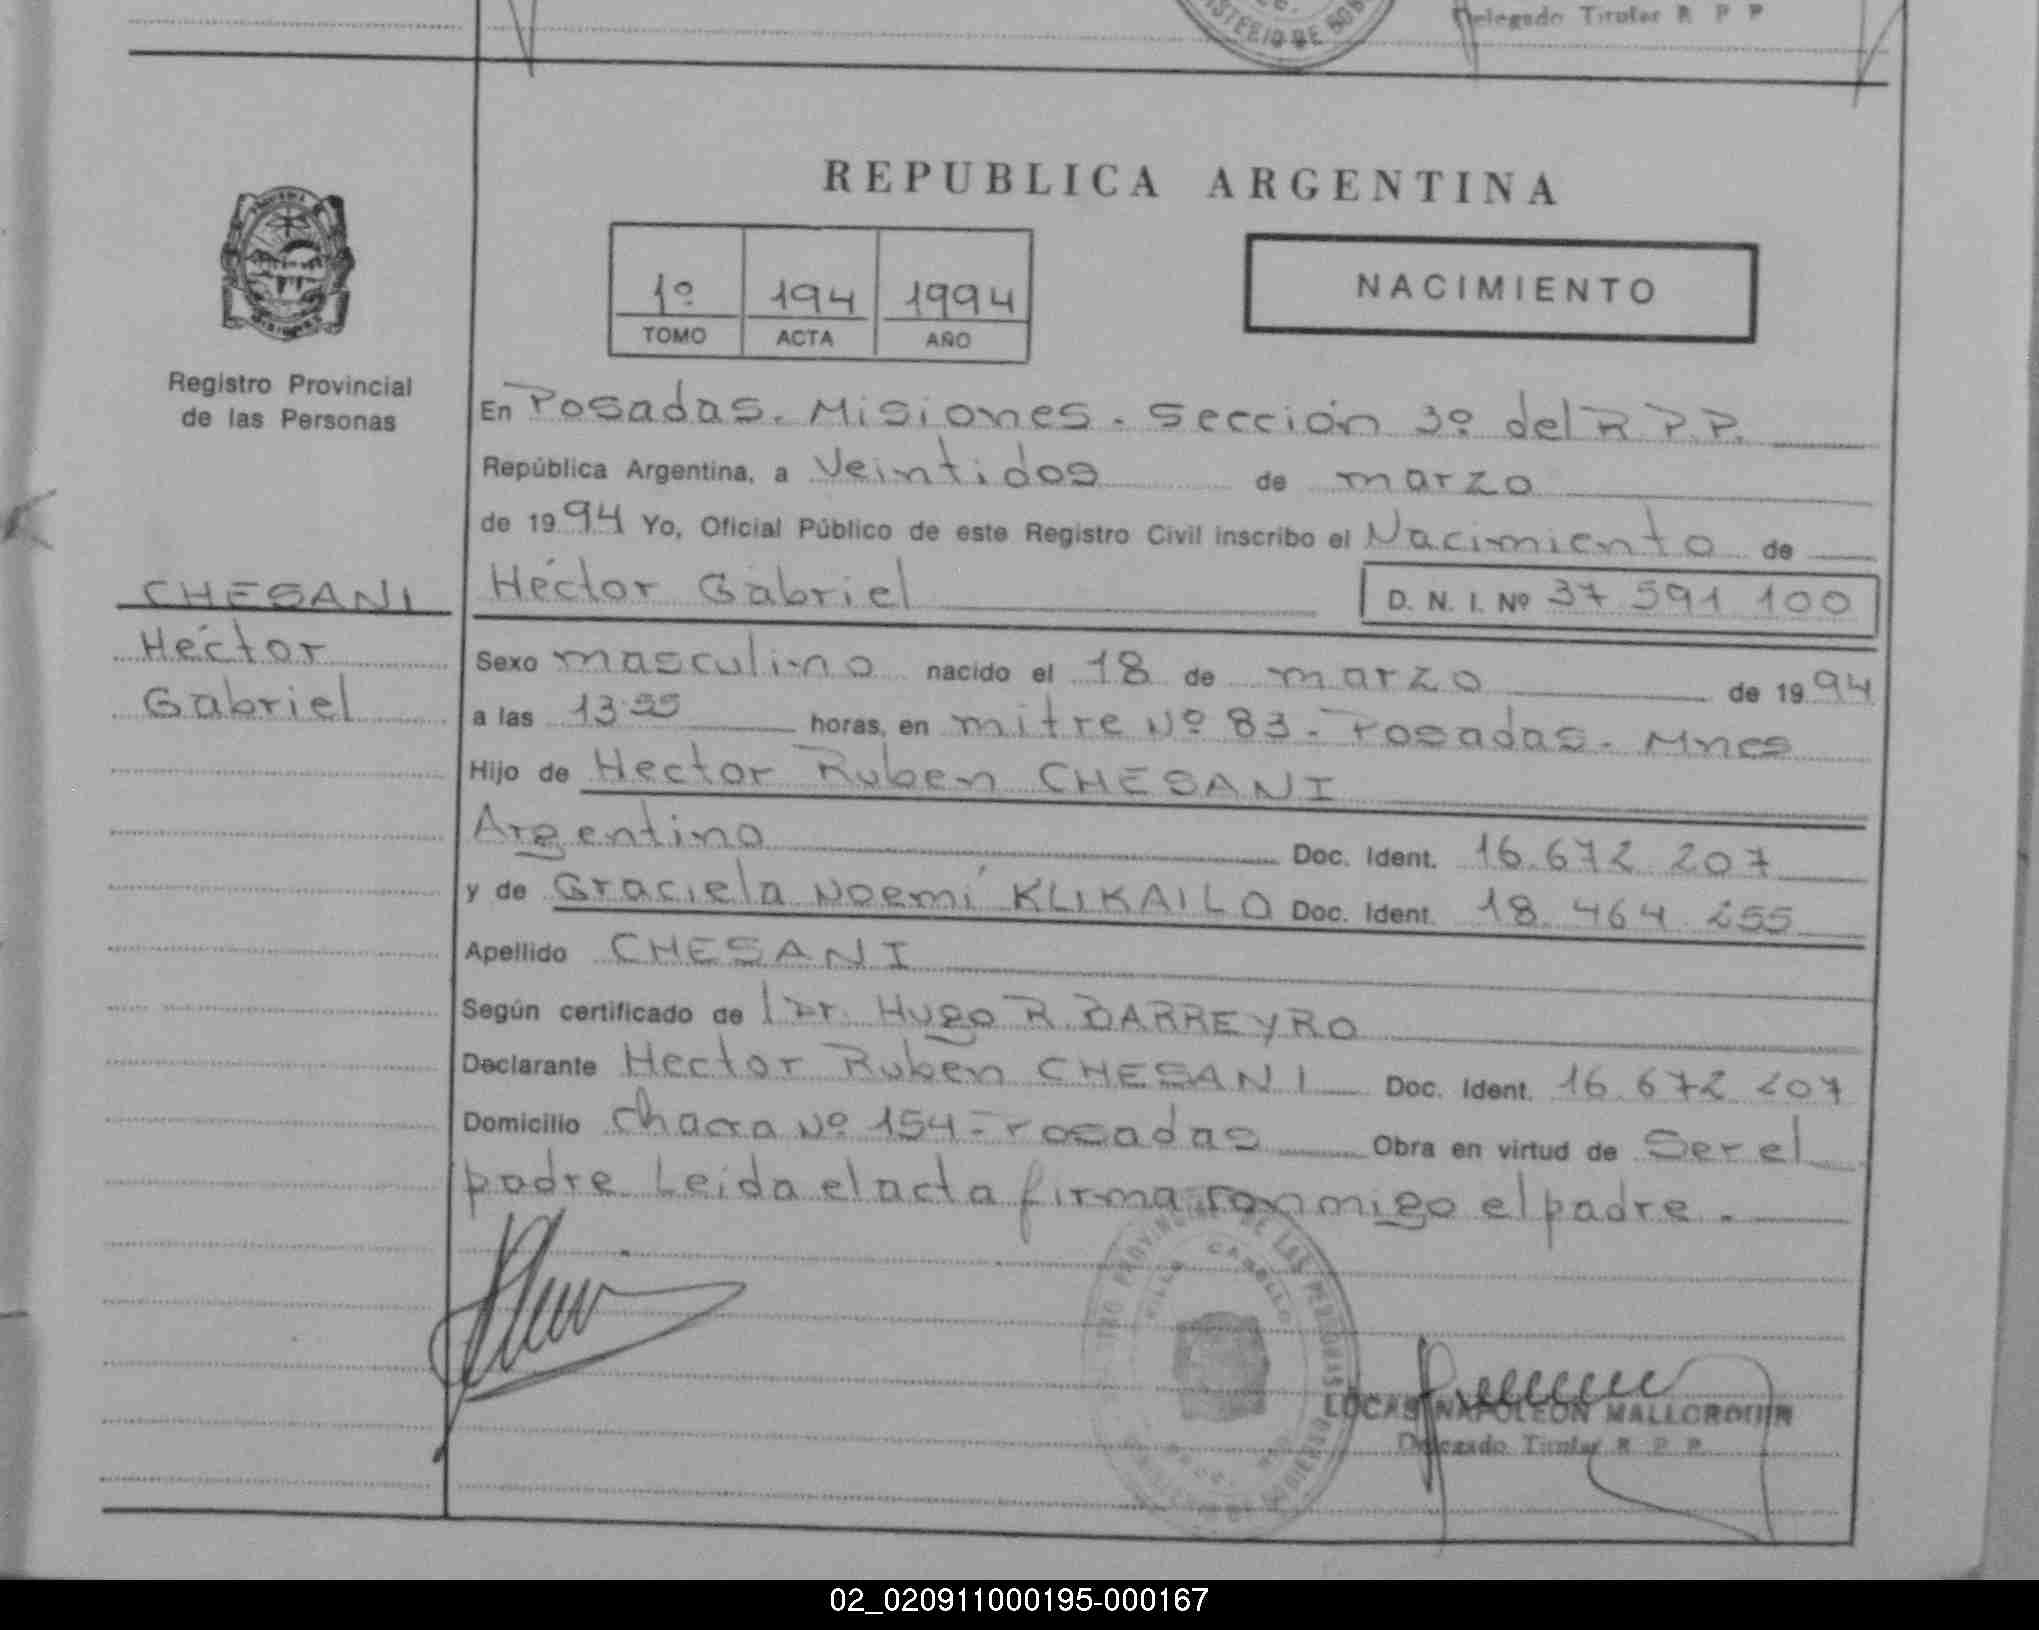 Delegado Titular R P P
MINISTERIO DE GOB
REPUBLICA ARGENTINA
1º 194 1994
TOMO ACTA AÑO
NACIMIENTO
Registro Provincial
de las Personas
En Posadas. Misiones. Sección 3º del R P.P.
República Argentina, a Veintidos de marzo
de 1994 Yo, Oficial Público de este Registro Civil inscribo el Nacimiento de
Héctor Gabriel D. N. I. Nº 37 591 100
CHESANI
Héctor
Gabriel
Sexo masculino nacido el 18 de marzo de 1994
a las 13 horas, en mitre Nº 83. Posadas. Mnes
Hijo de Hector Ruben CHESANI
Argentino Doc. Ident. 16.672 207
y de Graciela Noemí KLIKAILO Doc. Ident. 18.464.255
Apellido CHESANI
Según certificado de Dr. Hugo R BARREYRO
Declarante Hector Ruben CHESANI Doc. Ident. 16 672 207
Domicilio Chacra Nº 154 - Posadas Obra en virtud de Ser el
padre. Leida el acta firma conmigo el padre.
PROVINCIAL DE LAS PERSONAS
CABELLO
LUCAS NAPOLEON MALLORQUIN
Delegado Titular R P P
02_020911000195-000167